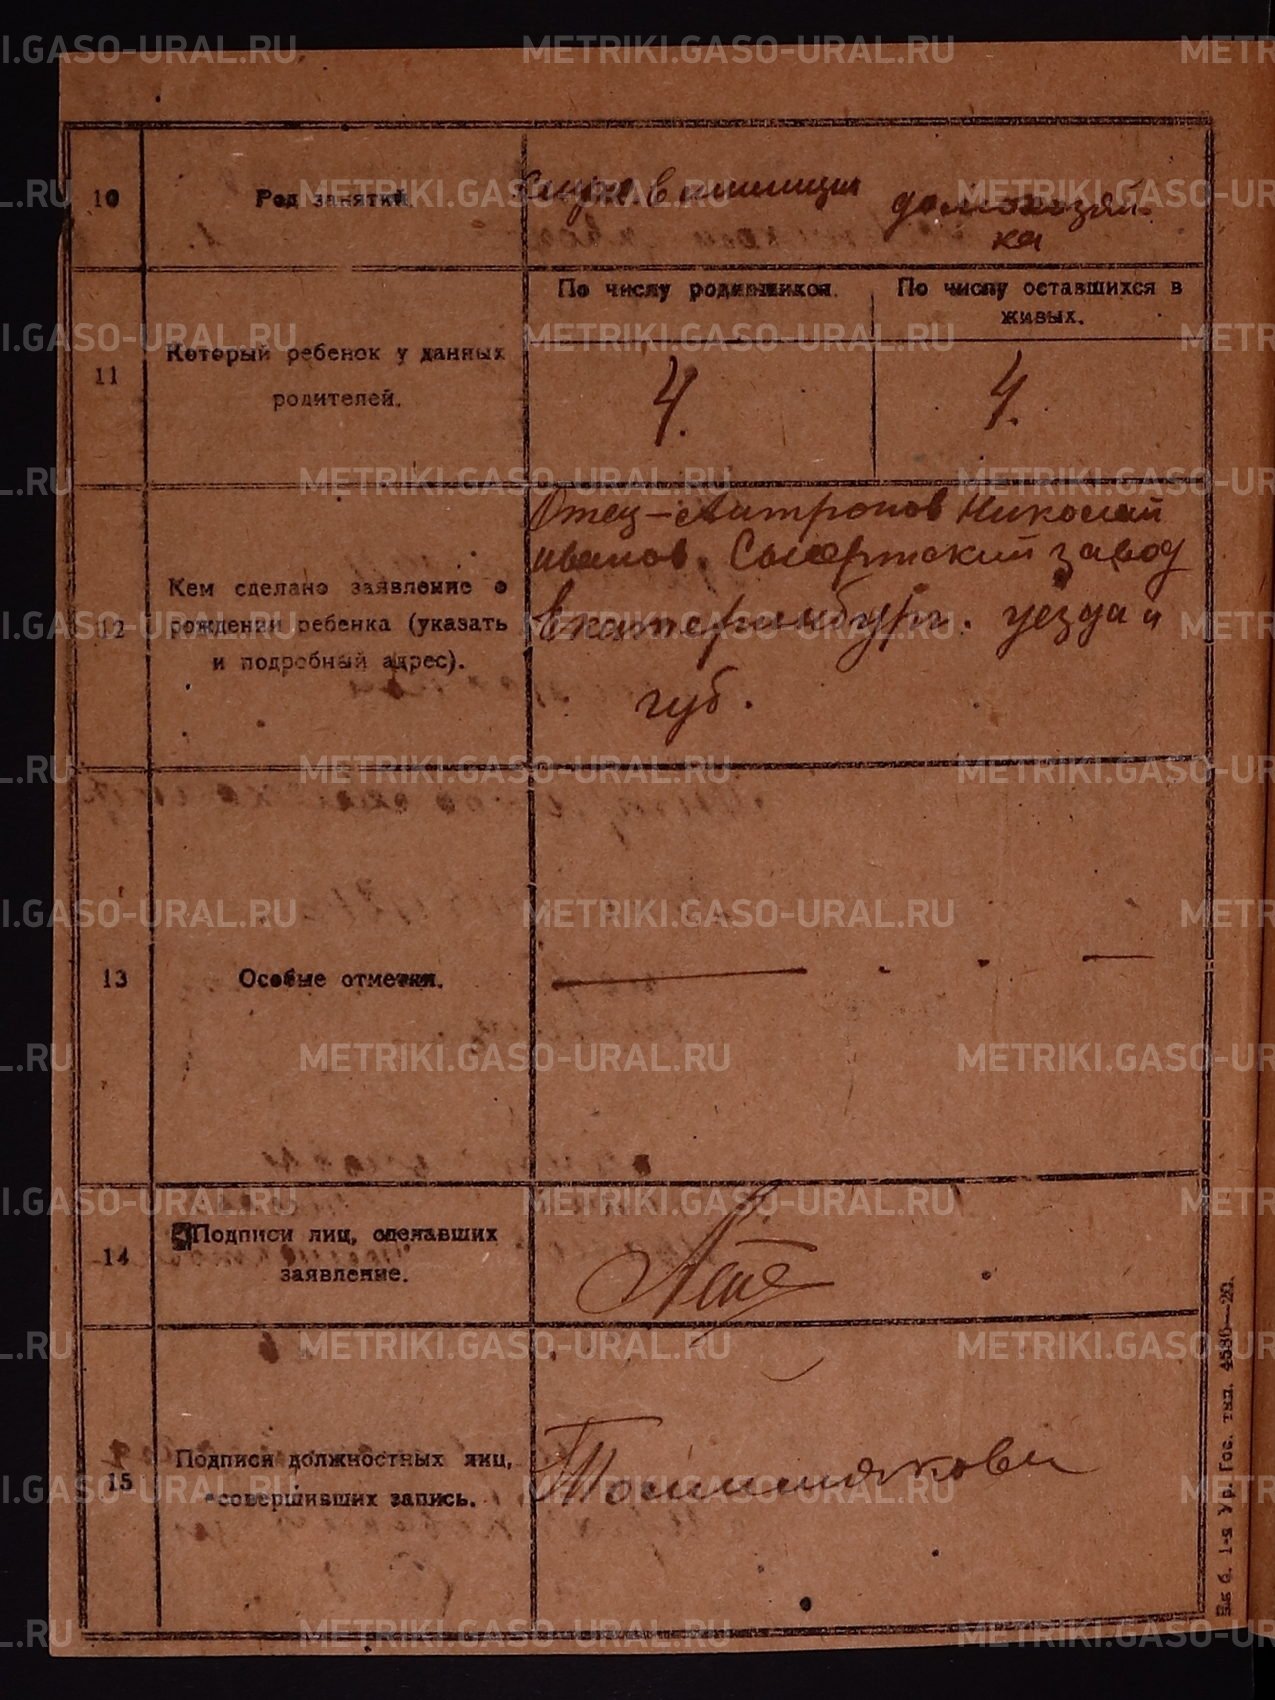 METRIKI.GASO-URAL.RU
10
Род занятий.
Служ. в милиции
домохозяй-
ка
11
Который ребенок у данных
родителей.
По числу родившихся.
По числу оставшихся в
живых.
4.
4.
12
Кем сделано заявление о
рождении ребенка (указать
и подробный адрес).
Отец – Антропов Николай
Иванов. Сысертский завод
Екатеринбург. уезда и
губ.
13
Особые отметки.
14
Подписи лиц, сделавших
заявление.
15
Подписи должностных лиц,
совершивших запись.
1-я Ур. Гос. тип. 4586—20.